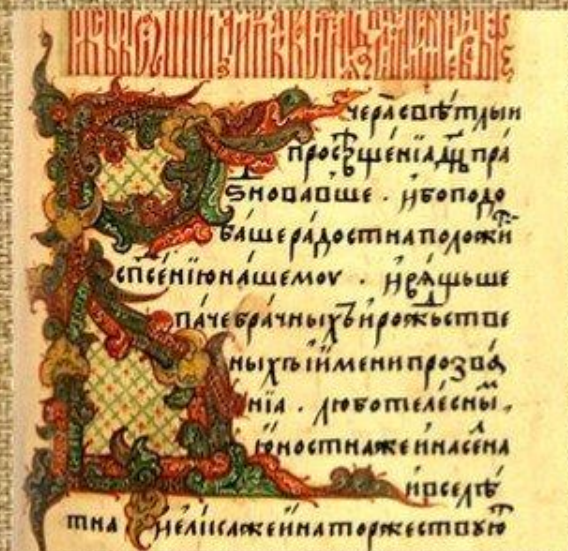 Вчера свѣтлыи
просвѣщенїа дн҃ь пра
ѕновавше . ибо подо
баше радостна положиⷮ
сп҃сенїю нашемоу . и вѧщьше
паче брачныхъ и рожьстве
ныхъ ї имени прозва
нїа . любо телесныⷯ .
юностна же и насеⷧна
и вселѣ
тна . и елїка же ина торжествуюⷮ